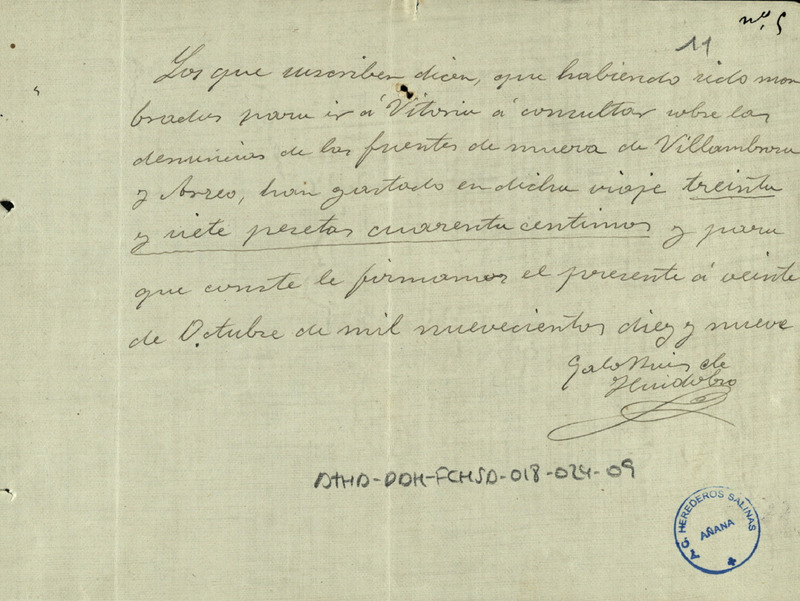 nº 5
11
Los que suscriben dicen, que habiendo sido nom
brados para ir á Vitoria á consultar sobre las
denuncias de las fuentes de muera de Villambrosa
y Arreo, han gastado en dicho viaje treinta
y siete pesetas cuarenta centimos y para
que conste le firmamos el presente á veinte
de Octubre de mil nuevecientos diez y nueve
Galo Ruis de
Huidobro
ATHA-DDH-FCHSA-018-024-09
HEREDEROS SALINAS
AÑANA